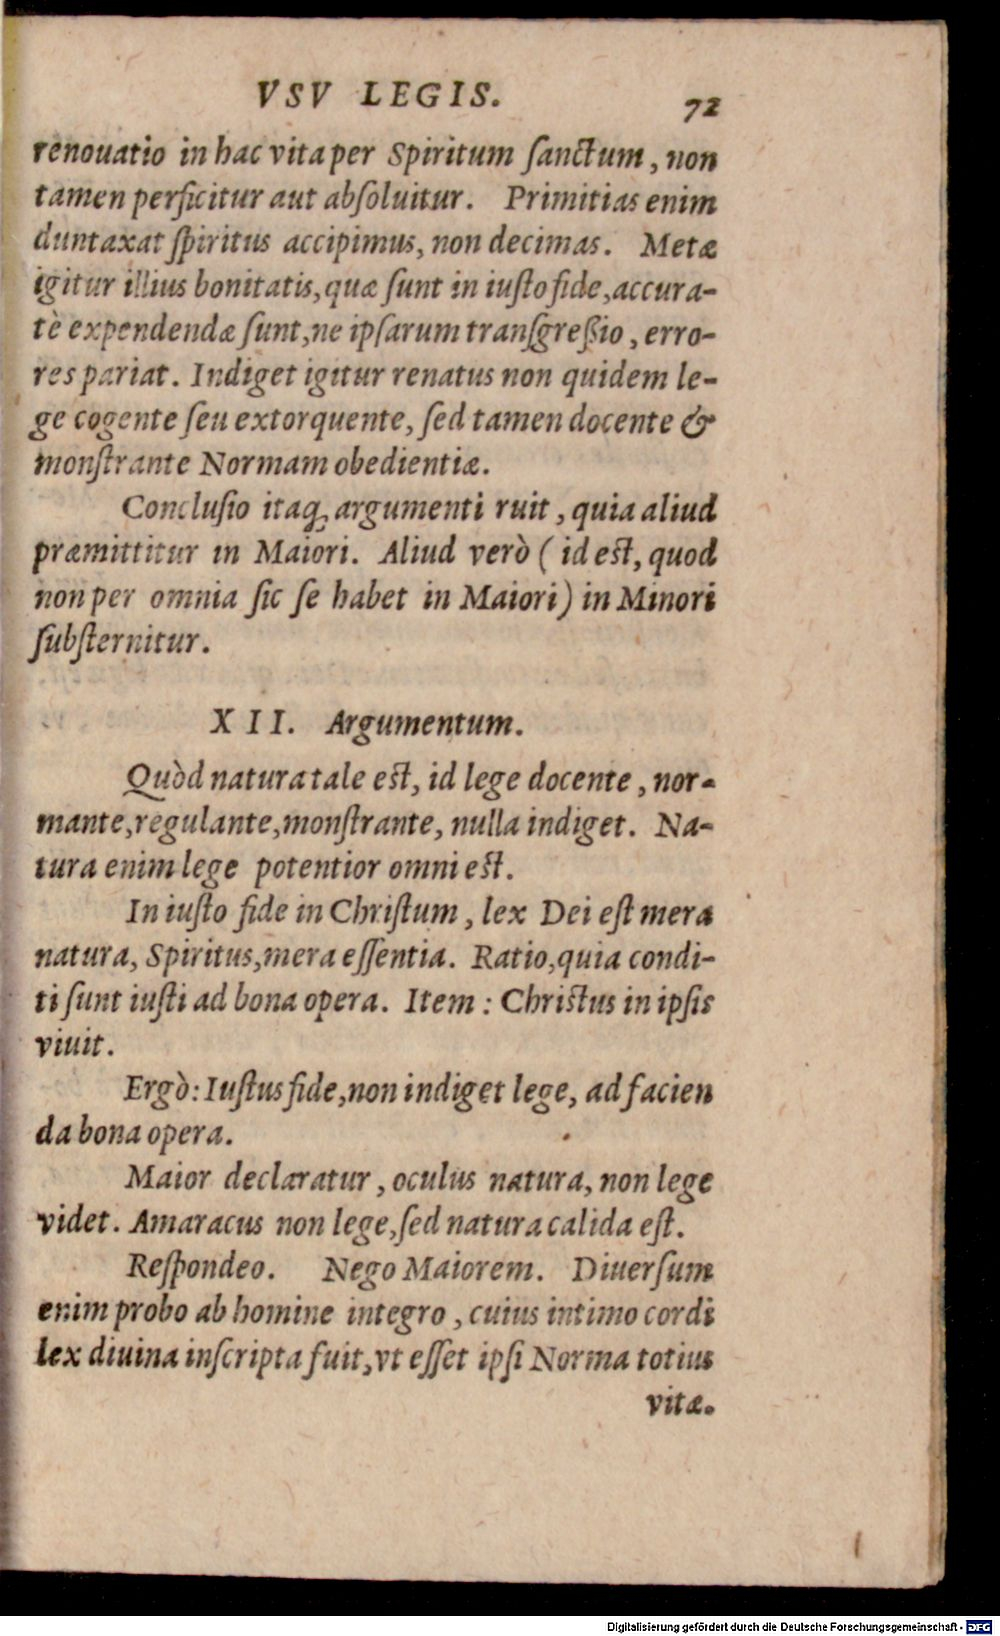 VSV LEGIS. 72
renouatio in hac vita per Spiritum ſanctum, non
tamen perficitur aut abſoluitur. Primitias enim
duntaxat ſpiritus accipimus, non decimas. Metæ
igitur illius bonitatis, quæ ſunt in iuſto fide, accura-
tè expendendæ ſunt, ne ipſarum tranſgreßio, erro-
res pariat. Indiget igitur renatus non quidem le-
ge cogente ſeu extorquente, ſed tamen docente &
monſtrante Normam obedientiæ.
Concluſio itaq; argumenti ruit, quia aliud
præmittitur in Maiori. Aliud verò (id eſt, quod
non per omnia ſic ſe habet in Maiori) in Minori
ſubſternitur.
XII. Argumentum.
Quòd natura tale eſt, id lege docente, nor-
mante, regulante, monſtrante, nulla indiget. Na-
tura enim lege potentior omni eſt.
In iuſto fide in Chriſtum, lex Dei eſt mera
natura, Spiritus, mera eſſentia. Ratio, quia condi-
ti ſunt iuſti ad bona opera. Item: Chriſtus in ipſis
viuit.
Ergò: Iuſtus fide, non indiget lege, ad facien
da bona opera.
Maior declaratur, oculus natura, non lege
videt. Amaracus non lege, ſed natura calida eſt.
Reſpondeo. Nego Maiorem. Diuerſum
enim probo ab homine integro, cuius intimo cordi
lex diuina inſcripta fuit, vt eſſet ipſi Norma totius
vitæ.
Digitalisierung gefördert durch die Deutsche Forschungsgemeinschaft - DFG